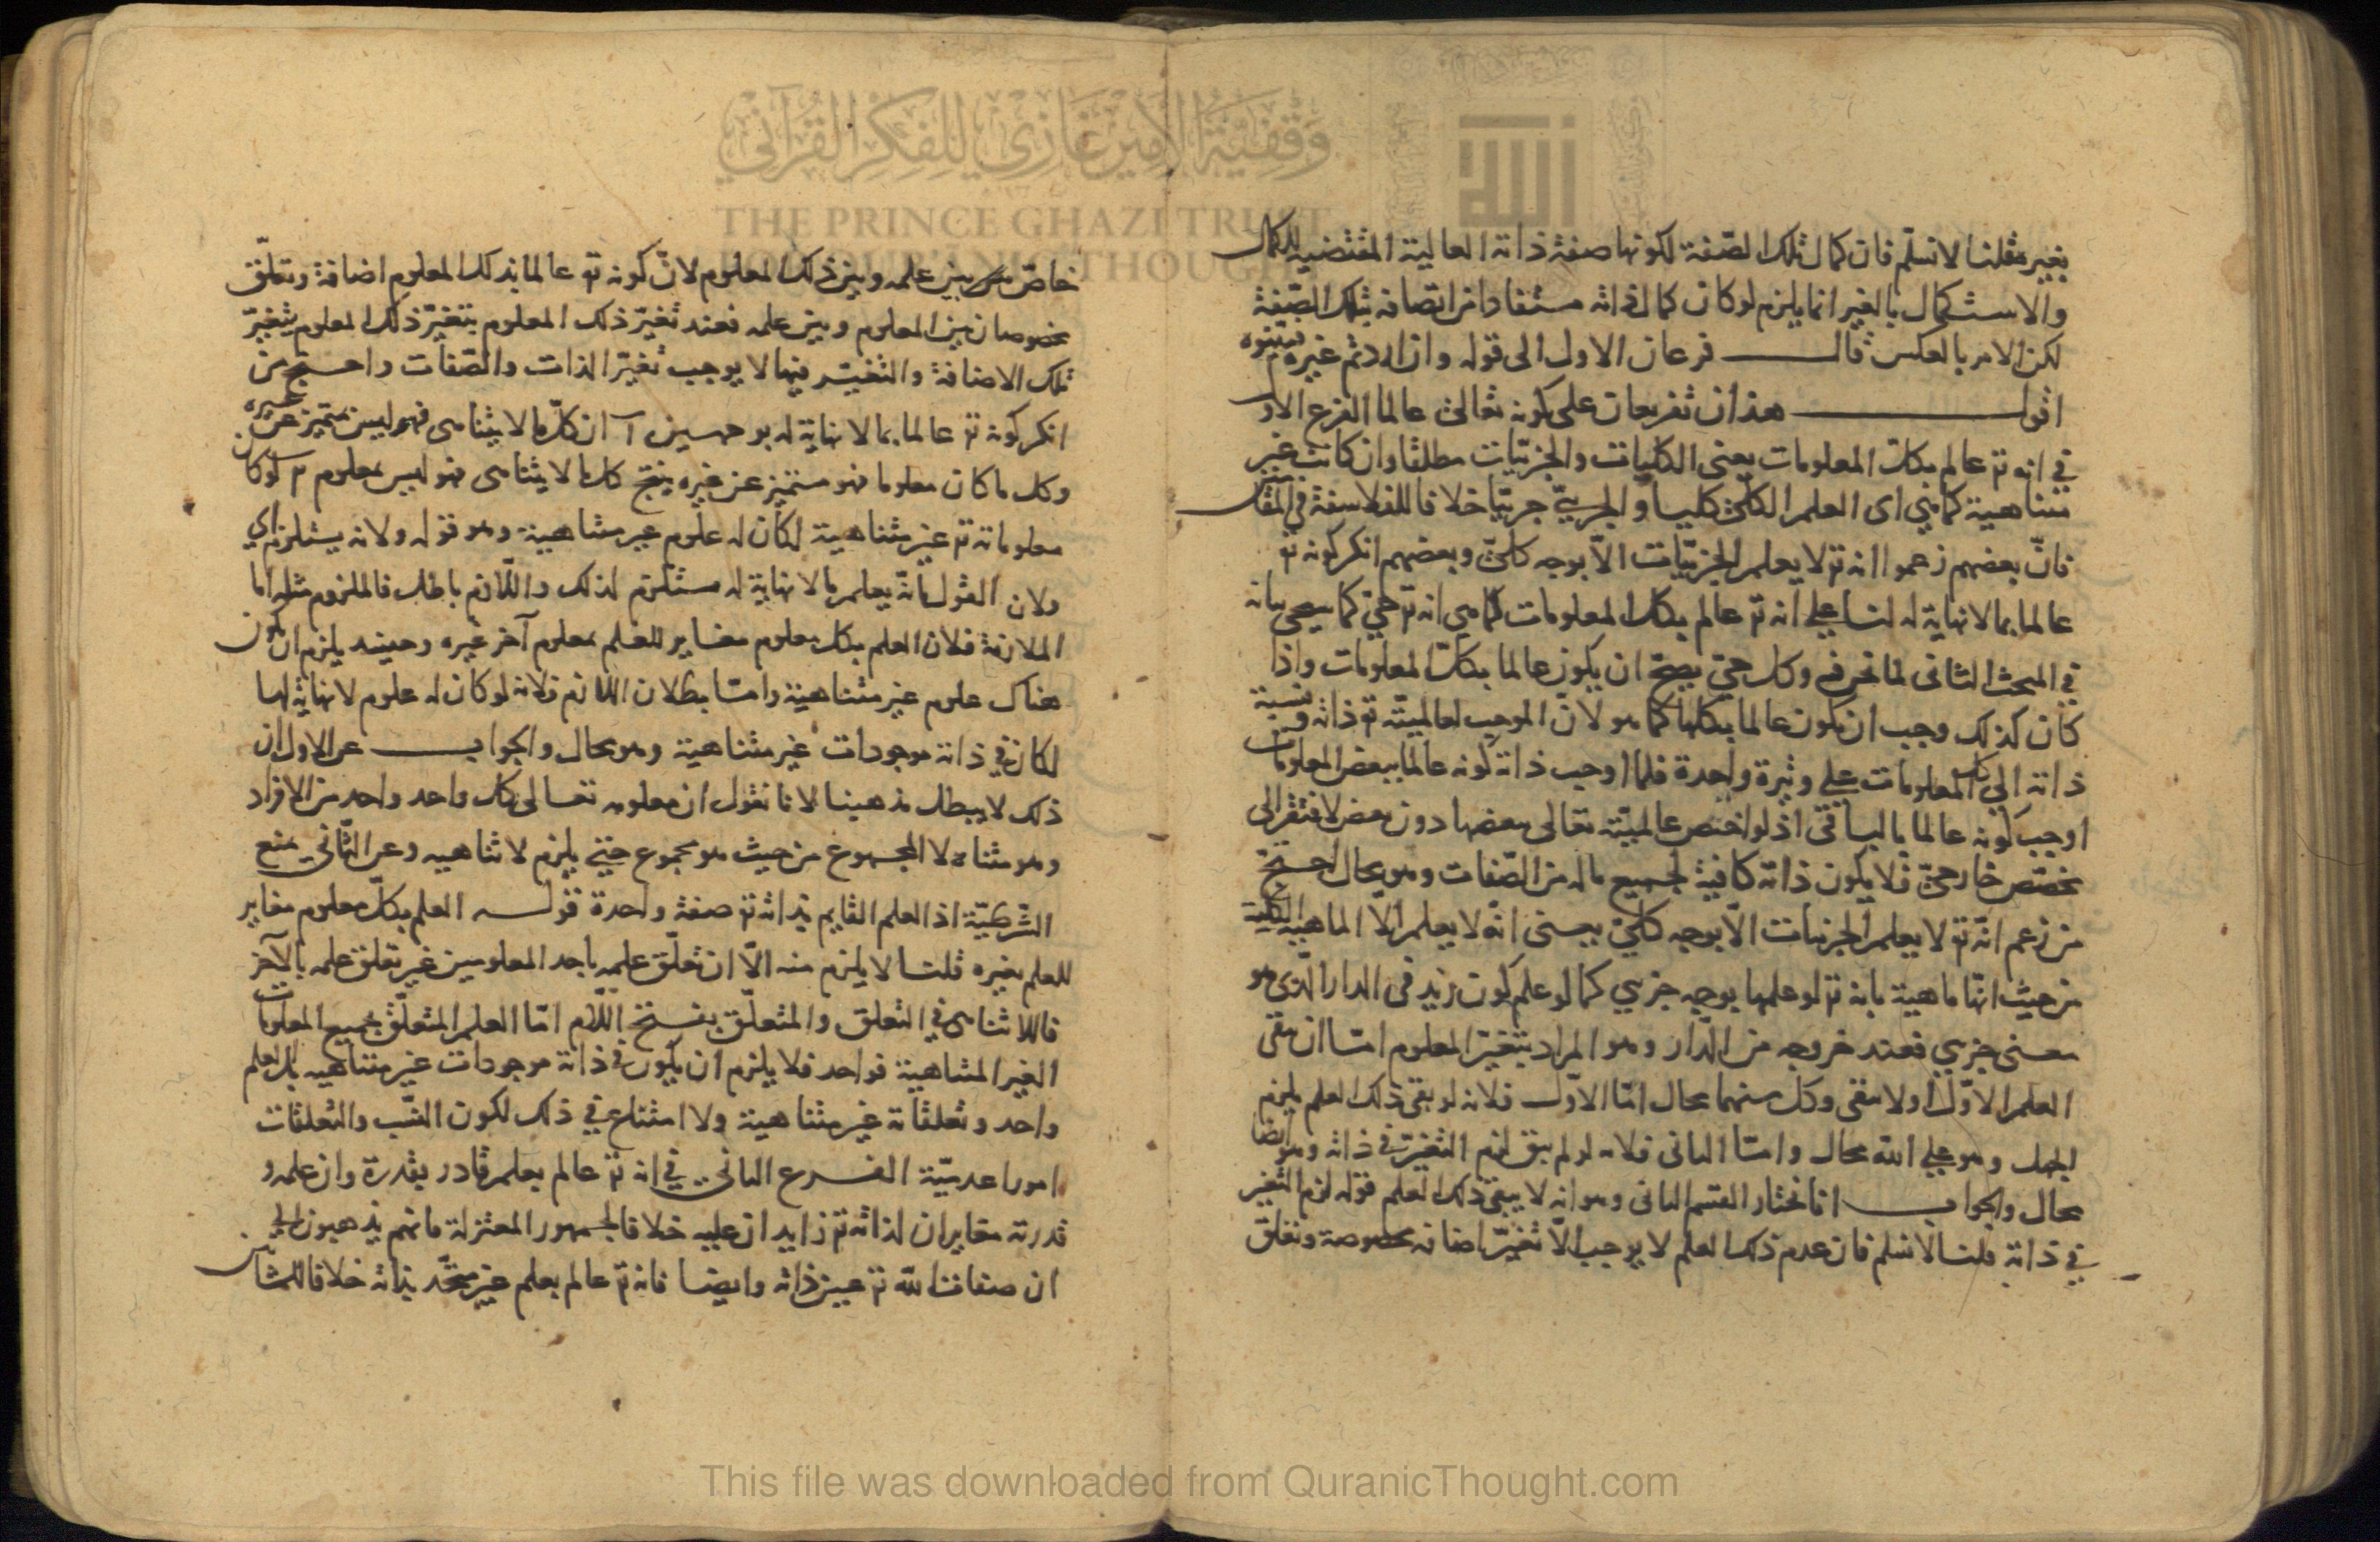 بغيره قلنا لا نسلم فان كمال تلك الصفة لكونها صفة ذاته العالية المقتضية للكمال
والاستكمال بالغير انما يلزم لو كان كمال ذاته مستفادا من اتصافه بتلك الصفة
لكن الامر بالعكس قال فرعان الاول الى قوله وان اردتم غيره فبينوه
اقول هذان تفريعان على كونه تعالى عالما الفرع الاول
في انه تع عالم بكل المعلومات يعنى الكليات والجزئيات مطلقا وان كانت غير
متناهية كما هي اى العلم الكلي كليا والجزئي جزئيا خلافا للفلاسفة في المقال
فان بعضهم زعموا انه تع لا يعلم الجزئيات الا بوجه كلي وبعضهم انكر كونه تع
عالما بما لا نهاية له لنا على انه تع عالم بكل المعلومات كما هي انه تع حي كما سيجى بيانه
في المبحث الثانى لما نعرفه وكل حي يصح ان يكون عالما بكل المعلومات واذا
كان كذلك وجب ان يكون عالما بكلها كما هو لان الموجب لعالميته تع ذاته ونسبة
ذاته الى كل المعلومات على وتيرة واحدة فلما اوجب ذاته كونه عالما ببعض المعلومات
اوجب كونه عالما بالباقى اذ لو اختص عالميته تعالى ببعضها دون بعض لافتقر الى
مخصص خارجي فلا يكون ذاته كافية لجميع ماله من الصفات وهو محال احتج
من زعم انه تع لا يعلم الجزئيات الا بوجه كلي بمعنى انه لا يعلم الا الماهية الكلية
من حيث انها ماهية بانه تع لو علمها بوجه جزيي كما لو علم كون زيد فى الدار الذى هو
معنى جزيي فعند خروجه من الدار وهو المراد بتغير المعلوم اما ان يبقى
العلم الاول او لا يبقى وكل منهما محال اما الاول فلانه لو بقى ذلك العلم يلزم
الجهل وهو على الله محال واما الثانى فلانه لو لم يبق لزم التغير في ذاته وهو ايضا
محال والجواب انا نختار القسم الثانى وهو انه لا يبقى ذلك العلم قوله لزم التغير
في ذاته قلنا لا نسلم فان عدم ذلك العلم لا يوجب الا تغير اضافة مخصوصة وتعلق
خاص بين علمه وبين ذلك المعلوم لان كونه تع عالما بذلك المعلوم اضافة وتعلق
مخصوصان بين المعلوم وبين علمه فعند تغير ذلك المعلوم بتغير ذلك المعلوم يتغير
تلك الاضافة والتغير فيها لا يوجب تغير الذات والصفات واحتج من
انكر كونه تع عالما بما لا نهاية له بوجهين آ ان كل ما لا يتناهى فهو ليس متميز عن غيره
وكل ما كان معلوما فهو متميز عن غيره ينتج كل ما لا يتناهى فهو ليس بمعلوم لو كان
معلوماته تع غير متناهية لكان له علوم غير متناهية وهو قوله ولانه يستلزم اي
ولان القول بانه يعلم ما لا نهاية له مستلزم لذلك واللازم باطل فالملزوم مثله اما
الملازمة فلان العلم بكل معلوم مغاير للعلم بمعلوم آخر غيره وحينئذ يلزم ان يكون
هناك علوم غير متناهية واما بطلان اللازم فلانه لو كان له علوم لا نهاية لها
لكان في ذاته موجودات غير متناهية وهو محال والجواب عن الاول ان
ذلك لا يبطل مذهبنا لانا نقول ان معلومه تعالى كل واحد واحد من الافراد
وهو متناه لا المجموع من حيث هو مجموع حتى يلزم لا تناهيه وعن الثاني بمنع
الشرطية اذ العلم القايم بذاته تع صفة واحدة قوله العلم بكل معلوم مغاير
للعلم بغيره قلنا لا يلزم منه الا ان تعلق علمه باحد المعلومين غير تعلق علمه بالآخر
فاللاتناهى في التعلق والمتعلق بفتح اللام اما العلم المتعلق بجميع المعلومات
الغير المتناهية فواحد فلا يلزم ان يكون في ذاته موجودات غير متناهيه بل العلم
واحد وتعلقاته غير متناهية ولا امتناع في ذلك لكون النسب والتعلقات
امورا عدمية الفرع الثانى في انه تع عالم بعلم قادر بقدرة وان علمه و
قدرته مغايران لذاته تع زايدان عليه خلافا لجمهور المعتزلة فانهم يذهبون الى
ان صفات الله تع عين ذاته وايضا فانه تع عالم بعلم غير متحد بذاته خلافا للمشائين
وقفية الأمير غازي للفكر القرآني
THE PRINCE GHAZI TRUST
FOR QURANIC THOUGHT
This file was downloaded from QuranicThought.com